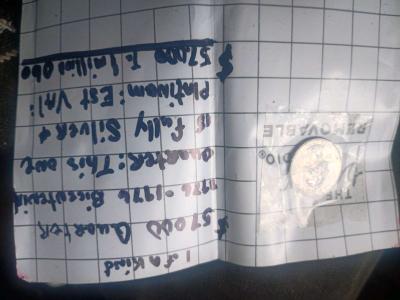 1 of a Kind
$57000 Quarter
1776-1976
Quarter: This one
is fully Silver +
Platinum: Est Val:
$57,000 To 1million Obo
REMOVABLE